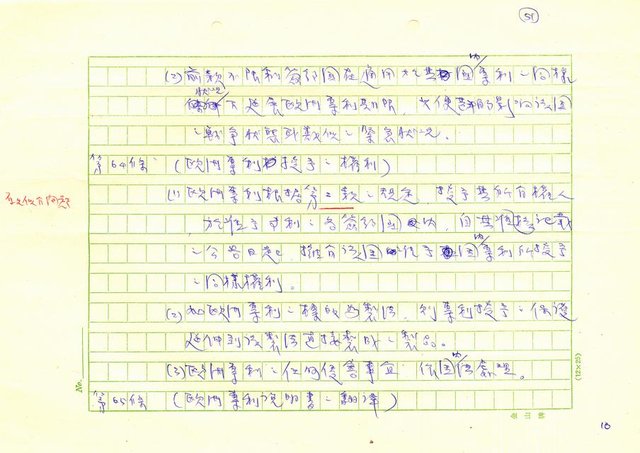 51
(2) 前款不限制簽約國在適用於其國內專利之同樣
狀況下延長歐洲專利期限,以便
之戰爭狀態或類似之緊急狀況。
第64條 (歐洲專利授予之權利)
(1) 歐洲專利根據第二款之規定,授予其所有權人
於授予專利之各簽約國內,自其
之公告日起,擁有該國授予國內專利所授予
之同樣權利。
(2) 如歐洲專利之標的為製法,則專利授予之保護
延伸到該製法直接製成之製品。
(3) 歐洲專利之任何侵害事宜 依國內法處理。
第65條 (歐洲專利說明書之翻譯)
No.
(12×25)
10